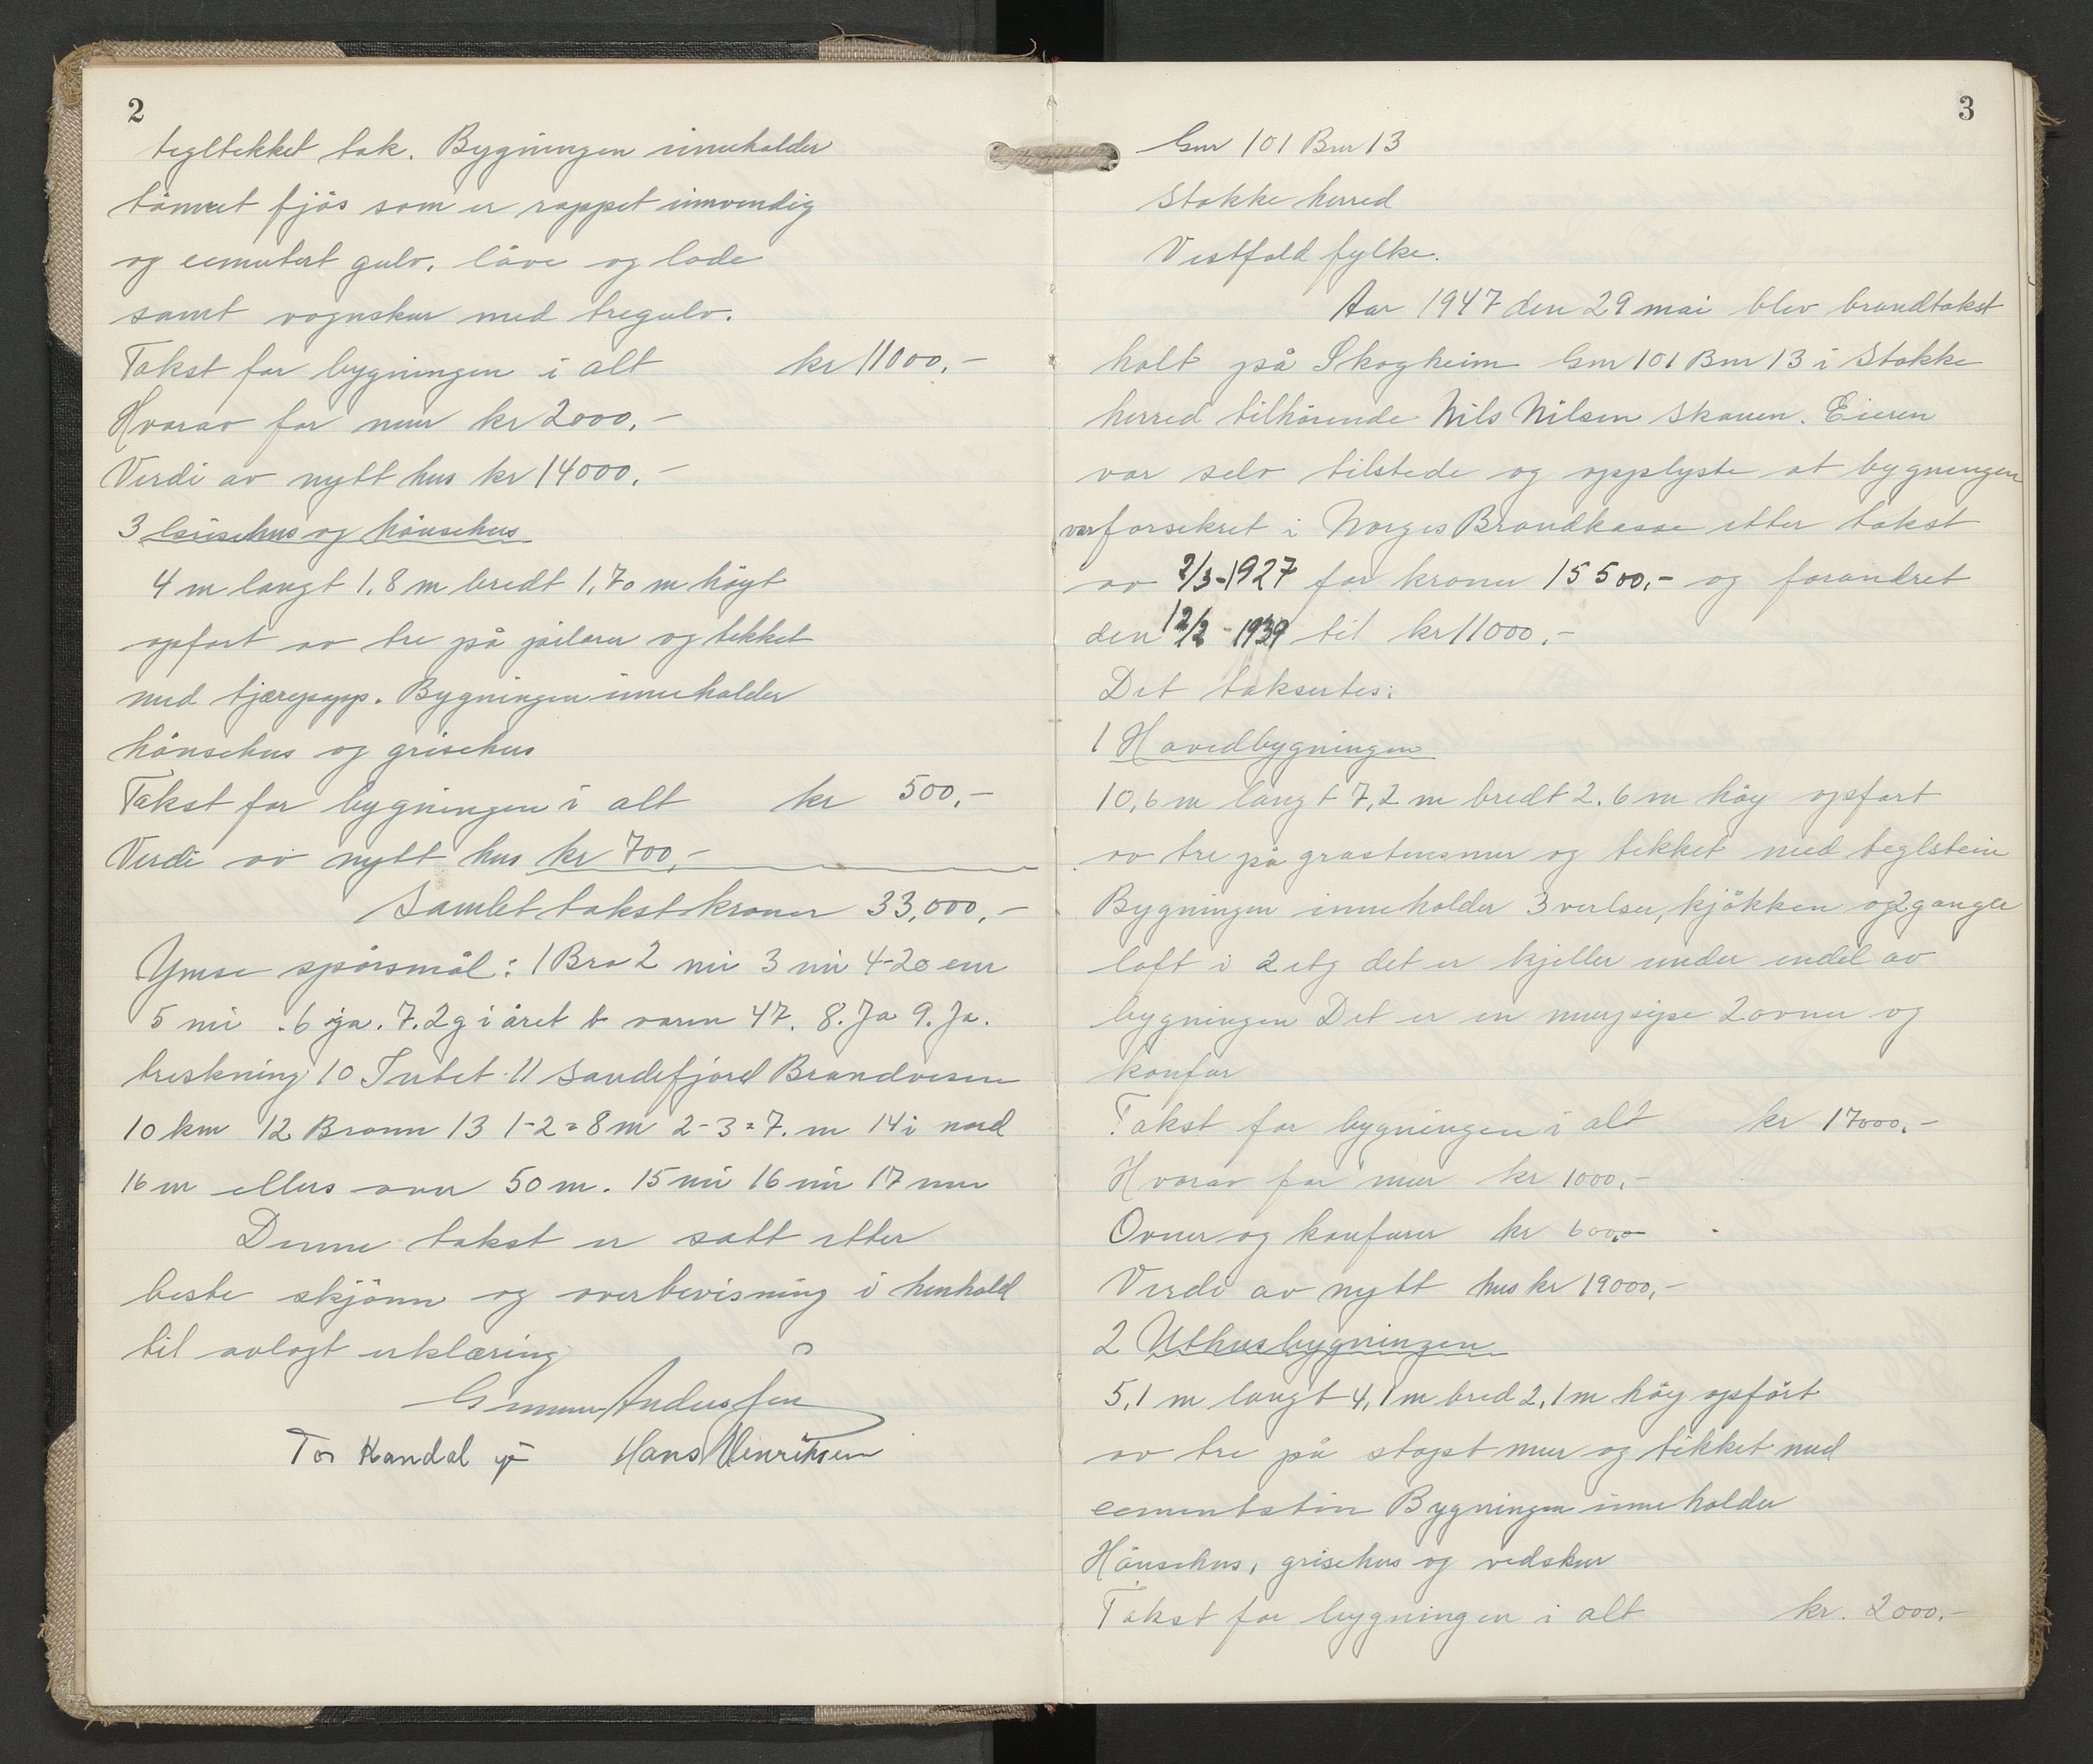 2
tegltekket tak. Bygningen inneholder
tömret fjös som er rappet innvendig
og cementert gulv, låve og lade
samt vognskur med tregulv.
Takst for bygningen i alt kr 11000,-
Hvorav for mur kr 2000,-
Verdi av nytt hus kr 14000,-
3 Grisehus og hönsehus
4 m langt 1,8 m bredt 1,70 m høyt
opfört av tre på pilarer og tekket
med tjærepapp. Bygningen inneholder
hönsehus og grisehus
Takst for bygningen i alt kr 500,-
Verdi av nytt hus kr 700,-
Samlet takst kroner 33,000,-
Ymse spörsmål: 1 Bra 2 nei 3 nei 4-20 cm
5 nei . 6 ja. 7. 2 g i året b varen 47. 8. Ja 9. Ja.
treskning 10 Intet 11 Sandefjord Brandvesen
10 km 12 Brønn 13 1-2=8 m 2-3=7. m 14 i nord
16 m ellers over 50 m. 15 nei 16 nei 17 nei
Denne takst er satt etter
beste skjönn og overbevisning i henhold
til avlagt erklæring
Gunnar Anderssen
Tor Kandal Hans Henriksen
3
Gnr 101 Bnr 13
Stokke herred
Vestfold fylke.
Aar 1947 den 29 mai blev brandtakst
holt på Skogheim Gnr 101 Bnr 13 i Stokke
herred tilhörende Nils Nilsen Skauen. Eieren
var selv tilstede og opplyste at bygningen
var forsekret i Norges Brandkasse etter takst
av 2/3-1927 for kroner 15500,- og forandret
den 12/2-1939 til kr 11000,-
Det taksertes:
1 Hovedbygningen
10,6 m langt 7,2 m bredt 2,6 m høy opfört
av tre på grastensmur og tekket med teglstein
Bygningen inneholder 3 verlser, kjökken og 2 ganger
loft i 2 etg det er kjeller under endel av
bygningen Det er en murpipe 2 ovner og
konfur
Takst for bygningen i alt kr 17000,-
Hvorav for mur kr 1000,-
Ovner og konfurer kr 600,0
Verdi av nytt hus kr 19000,-
2 Uthusbygningen
5,1 m langt 4,1 m bred 2,1 m høy opfört
av tre på støpt mur og tekket med
cementstein Bygningen inneholder
Hönsehus, grisehus og vedskur
Takst for bygningen i alt kr. 2000,-